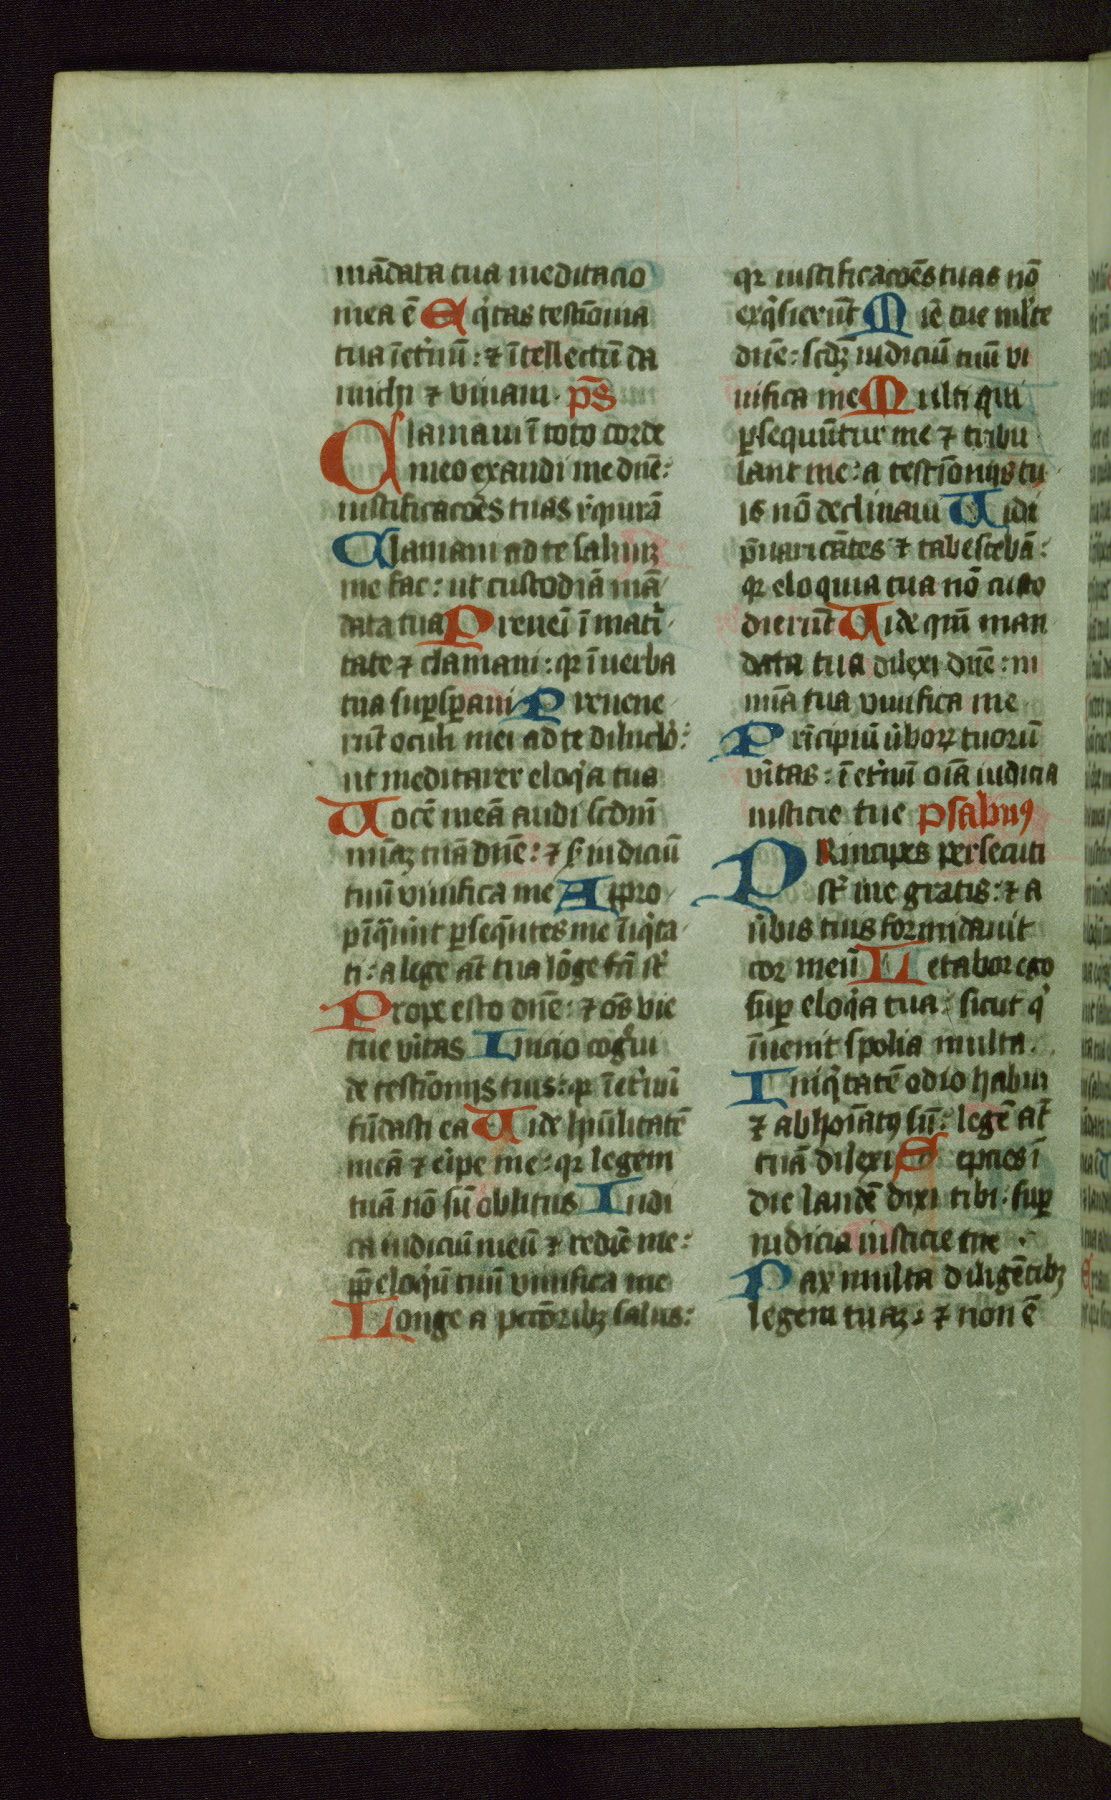 mādata tua meditacio
mea ē Eq̇tas testīonia
tua ī et̓nū : ⁊ ītellectū da
michi ⁊ viuam · ps̄
Clamaui ī toto corde
meo exaudi me dn̄e :
iustificacōēs tuas reqͥrā
Clamaui ad te saluū
me fac : ut custodiā mā
data tua Preueni ī mat̓i
tate ⁊ clamaui : qꝛ ī uerba
tua suꝑsꝑaui Preuene
rūt oculi mei ad te diluclo̓ :
ut meditarer eloqͥa tua
Uocē meā audi scdm̄
mīaꝫ tuā dn̄e : ⁊ scḋ iudiciū
tuū viuifica me Appro
pīq̄uūt ꝑseq̄ntes me īiqͥta
ti : a lege aūt tua lōge fc̄i st̄
Prope esto dn̄e : ⁊ oēs vie
tue v̓itas Inicio cogͦui
de testīonijs tuis : qꝛ ī et̓nū
fūdasti ea Uide hūilitatē
meā ⁊ eͥipe me : qꝛ legem
tuā nō sū oblitus Iudi
ca iudiciū meū ⁊ redīe me :
ꝓpt̄ eloqͥū tuū viuifica me
Longe a pctōribꝫ salus :
qꝛ iustificacōēs tuas nō
exqͥsierūt Mīe tue ml̓te
dn̄e : scdꝫ iudiciū tuū vi
uifica me Multi qui
ꝑsequūtur me ⁊ tribu
lant me : a testīonijs tu
is nō declinaui Uidi
p̄uaricātes ⁊ tabescebā :
qꝛ eloquia tua nō custo
dierūt Uide qm̄ man
data tua dilexi dn̄e : in
mīa tua viuifica me
Prīcipiū v̓boꝝ tuorū
v̓itas : ī et̓nū oīa iudicia
iusticie tue psalmꝰ
PRincipes persecuti
st̄ me gratis : ⁊ a
v̓bis tuis formidauit
cor meū Letabor ego
suꝑ eloqͥa tua : sicut qͥ
īuenit spolia multa .
Iniqͥtatē odio habui
⁊ abhoīatꝰ sū : legē aūt
tuā dilexi Sepcies ī
die laudē dixi tibi : suꝑ
iudicia iusticie tue ·
Pax multa diligētibꝫ
legem tuaꝫ : ⁊ non ē